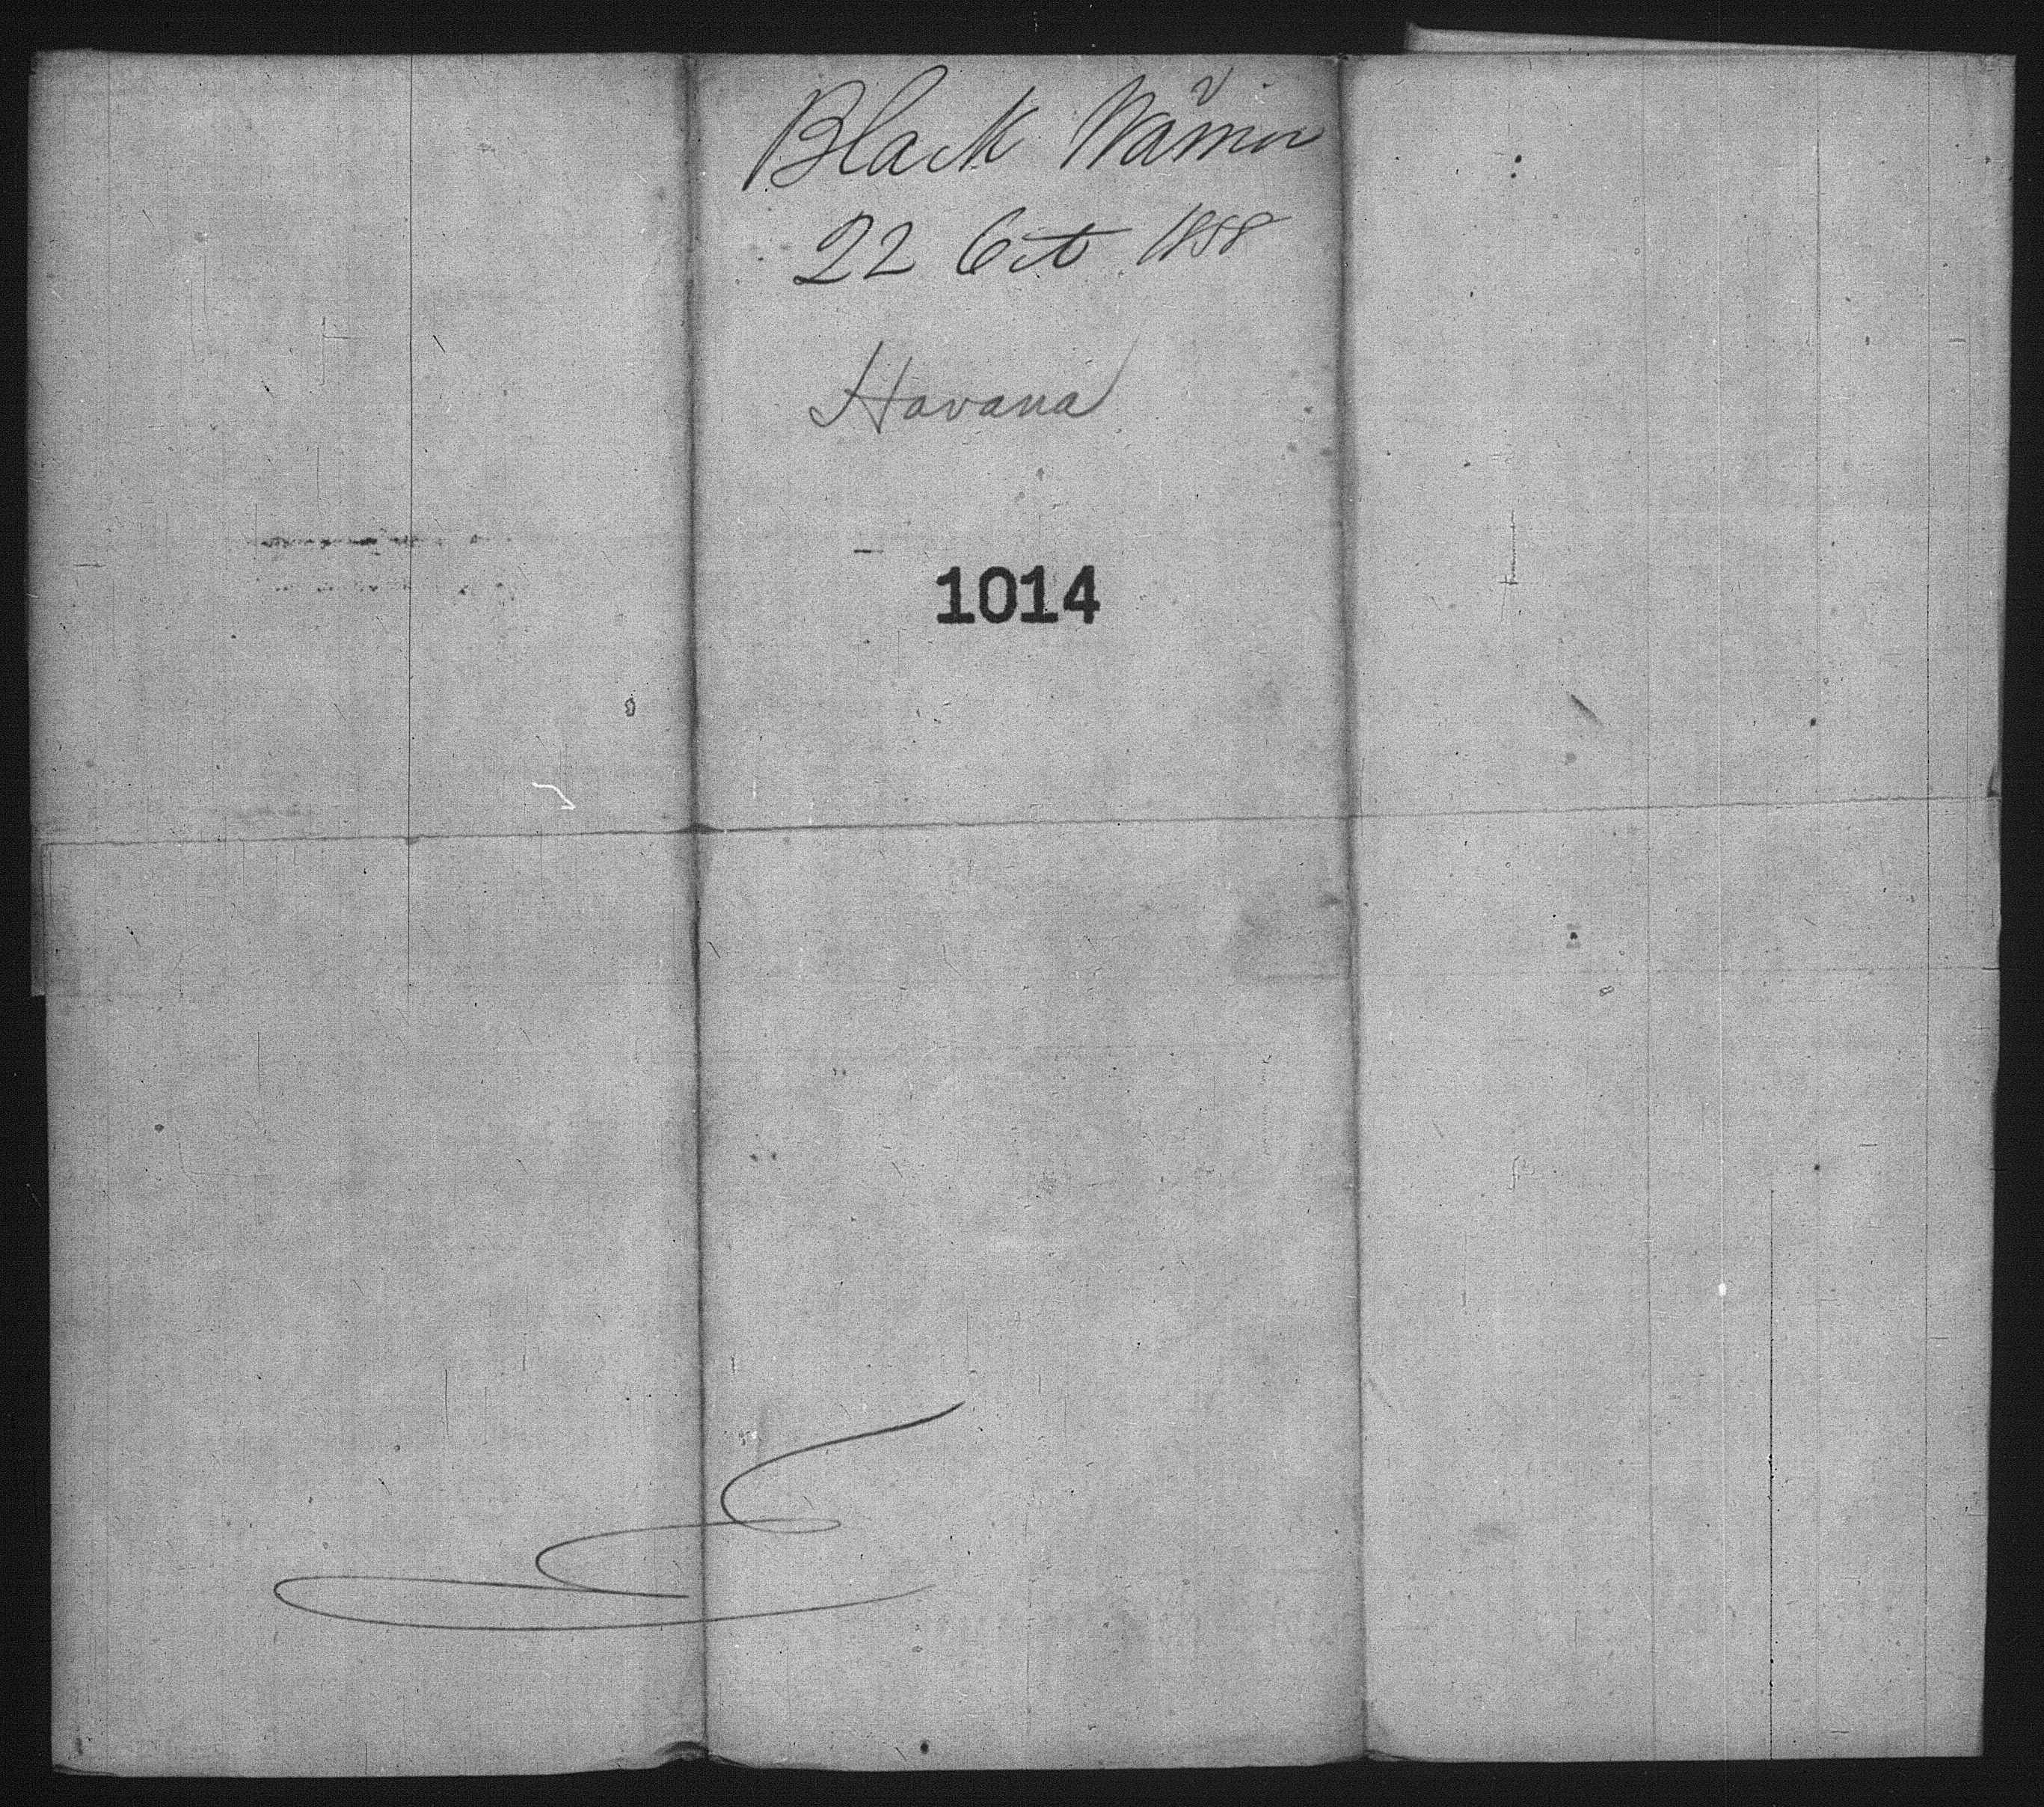 Black Warrior
22 Oct 1858
Havana
1014